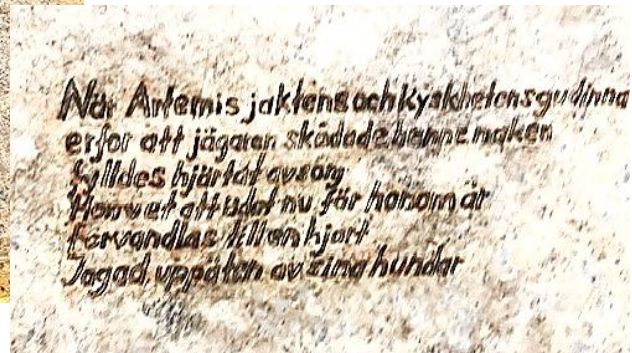 När Artemis jaktens och kyskhetens gudinna
erfor att jägaren skådade henne naken
fylldes hjärtat av sorg
Hon vet att ödet nu för honom är
förvandlas till en hjort
Jagad, uppäten av sina hundar